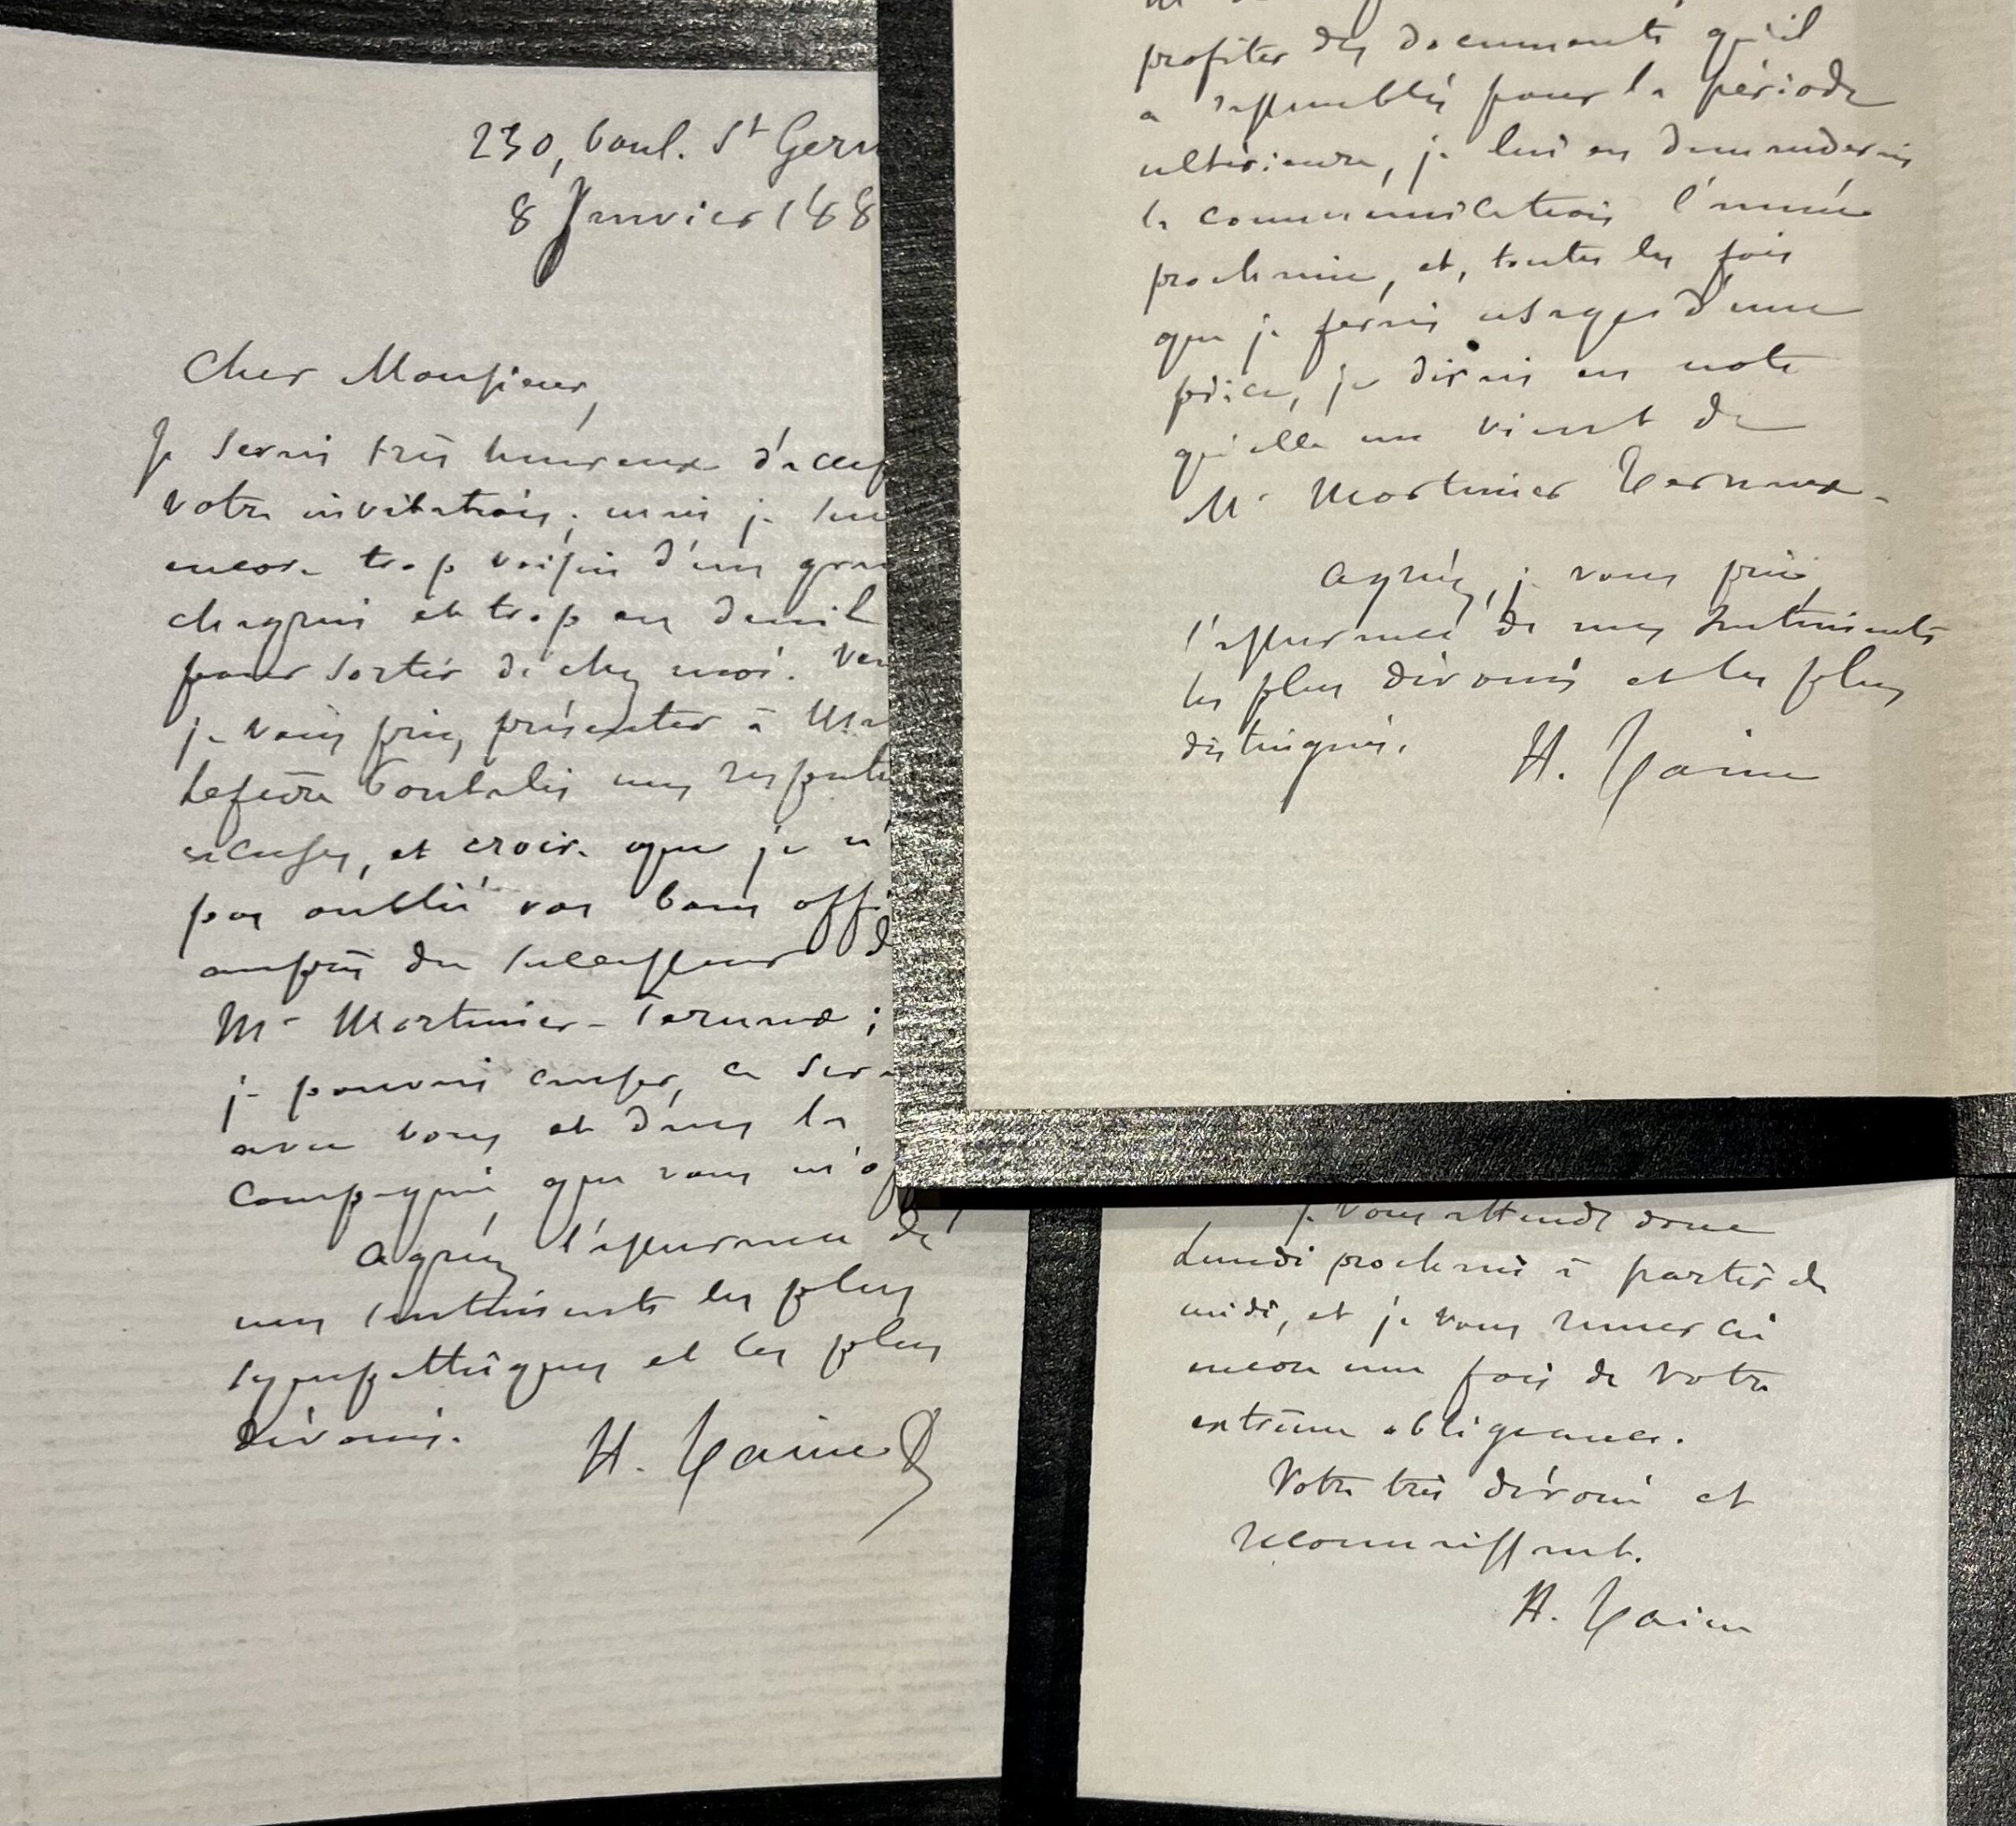 230, boul. St Germ
8 Janvier 188
Cher Monsieur,
Je serais très heureux d'accep
votre invitation; mais je sui
encore trop voisin d'un gran
chagrin et trop en deuil
pour sortir de chez moi. Veu
je vous prie, présenter à Ma
Lefèvre Pontalis mes respectu
excuses, et croire que je n'
pas oublié vos bons offi
auprès du successeur d
Mr Mortimer-Ternaux;
je pouvais causer, ce sera
avec vous et dans la
compagnie que vous m'of
Agréez l'assurance de
mes sentiments les plus
sympathiques et les plus
dévoués.
H. Taine
profiter des documents qu'il
a rassemblés pour la période
ultérieure, je lui en demanderais
la communication l'année
prochaine, et, toutes les fois
que je ferais usage d'une
pièce, je dirais en note
qu'elle me vient de
Mr Mortimer Ternaux.
Agréez, je vous prie,
l'assurance de mes sentiments
les plus dévoués et les plus
distingués.
H. Taine
Je vous attends donc
Lundi prochain à partir de
midi, et je vous remercie
encore une fois de votre
extrême obligeance.
Votre très dévoué et
reconnaissant.
H. Taine